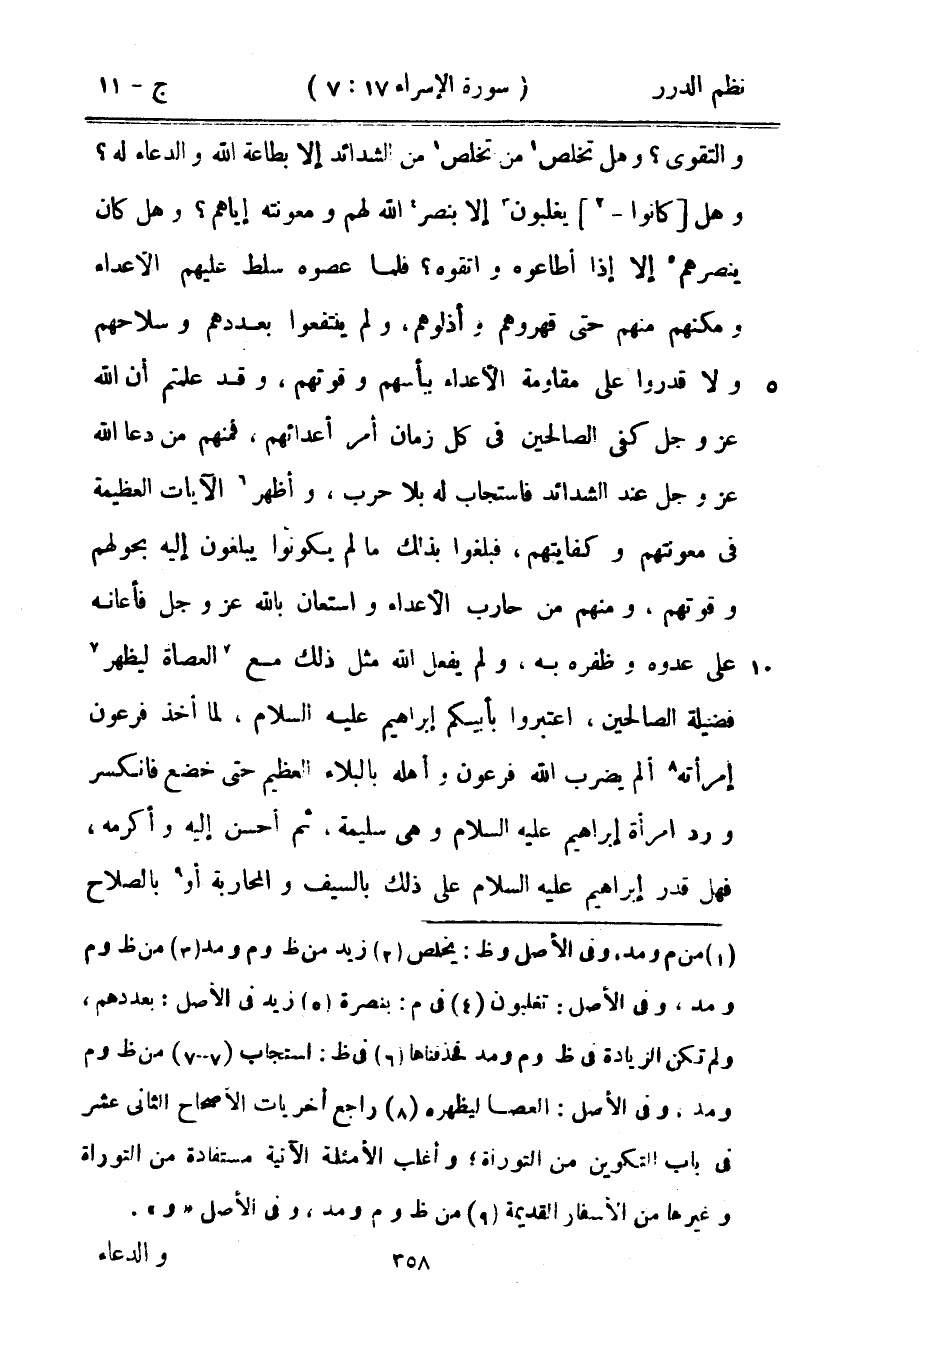 نظم الدرر ( سورة الإسراء ١٧ : ٧ ) ج - ١١
و التقوى ؟ و هل تخلص١ من تخلص١ من الشدائد إلا بطاعة الله و الدعاء له ؟
و هل [ كانوا - ٢ ] يغلبون٣ إلا بنصر٤ الله لهم و معونته إياهم ؟ و هل كان
ينصرهم٥ إلا إذا أطاعوه و اتقوه ؟ فلما عصوه سلط عليهم الأعداء
و مكنهم منهم حتى قهروهم و أذلوهم ، و لم ينتفعوا بعددهم و سلاحهم
٥ و لا قدروا على مقاومة الأعداء بأسهم و قوتهم ، و قد علمتم أن الله
عز و جل كفى الصالحين فى كل زمان أمر أعدائهم ، فمنهم من دعا الله
عز و جل عند الشدائد فاستجاب له بلا حرب ، و أظهر٦ الآيات العظيمة
فى معونتهم و كفايتهم ، فبلغوا بذلك ما لم يكونوا يبلغون إليه بحولهم
و قوتهم ، و منهم من حارب الأعداء و استعان بالله عز و جل فأعانه
١٠ على عدوه و ظفره به ، و لم يفعل الله مثل ذلك مع ٧العصاة ليظهر٧
فضيلة الصالحين ، اعتبروا بأبيكم إبراهيم عليه السلام ، لما أخذ فرعون
إمرأته٨ ألم يضرب الله فرعون و أهله بالبلاء العظيم حتى خضع فانكسر
و رد امرأة إبراهيم عليه السلام و هى سليمة ، ثم أحسن إليه و أكرمه ،
فهل قدر إبراهيم عليه السلام على ذلك بالسيف و المحاربة أو٩ بالصلاح
(١) من م و مد ، و فى الأصل و ظ : يخلص (٢) زيد من ظ و م و مد (٣) من ظ و م
و مد ، و فى الأصل : تغلبون (٤) فى م : بنصرة (٥) زيد فى الأصل : بعددهم ،
و لم تكن الزيادة فى ظ و م و مد فحذفناها (٦) فى ظ : استجاب (٧-٧) من ظ و م
و مد ، و فى الأصل : العصا ليظهره (٨) راجع أخريات الأصحاح الثانى عشر
فى باب التكوين من التوراة ؛ و أغلب الأمثلة الآتية مستفادة من التوراة
و غيرها من الأسفار القديمة (٩) من ظ و م و مد ، و فى الأصل « و » .
٣٥٨ و الدعاء